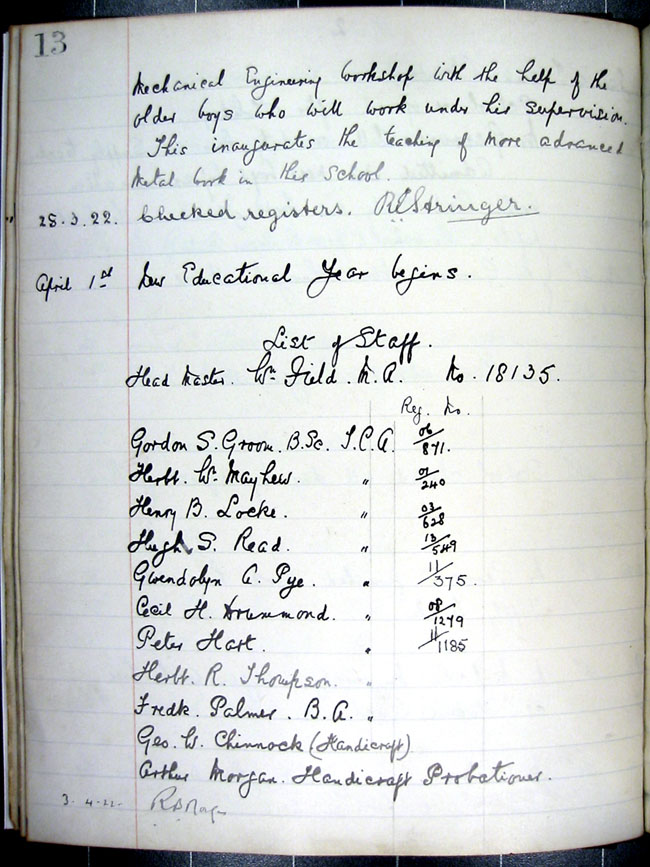 13
Mechanical Engineering Workshop with the help of the
older boys who will work under his supervision.
This inaugurates the teaching of more advanced
metal work in this School.
28.3.22. Checked registers. R E Stringer.
April 1st New Educational Year begins.
List of Staff.
Head Master. Wm Field. M.A. No. 18135.
Reg. No.
Gordon S. Groom. B.Sc. T.C.A. 06/871.
Herbt. W. Mayhew. " 01/240
Henry B. Locke. " 03/628
Hugh S. Read. " 13/549
Gwendolyn A. Pye. " 11/375.
Cecil H. Drummond. " 08/1279
Peter Hart. " 11/1185
Herbt. R. Thompson. "
Fredk. Palmer. B.A. "
Geo. W. Chinnock (Handicraft)
Arthur Morgan. Handicraft Probationer.
3.4.22.